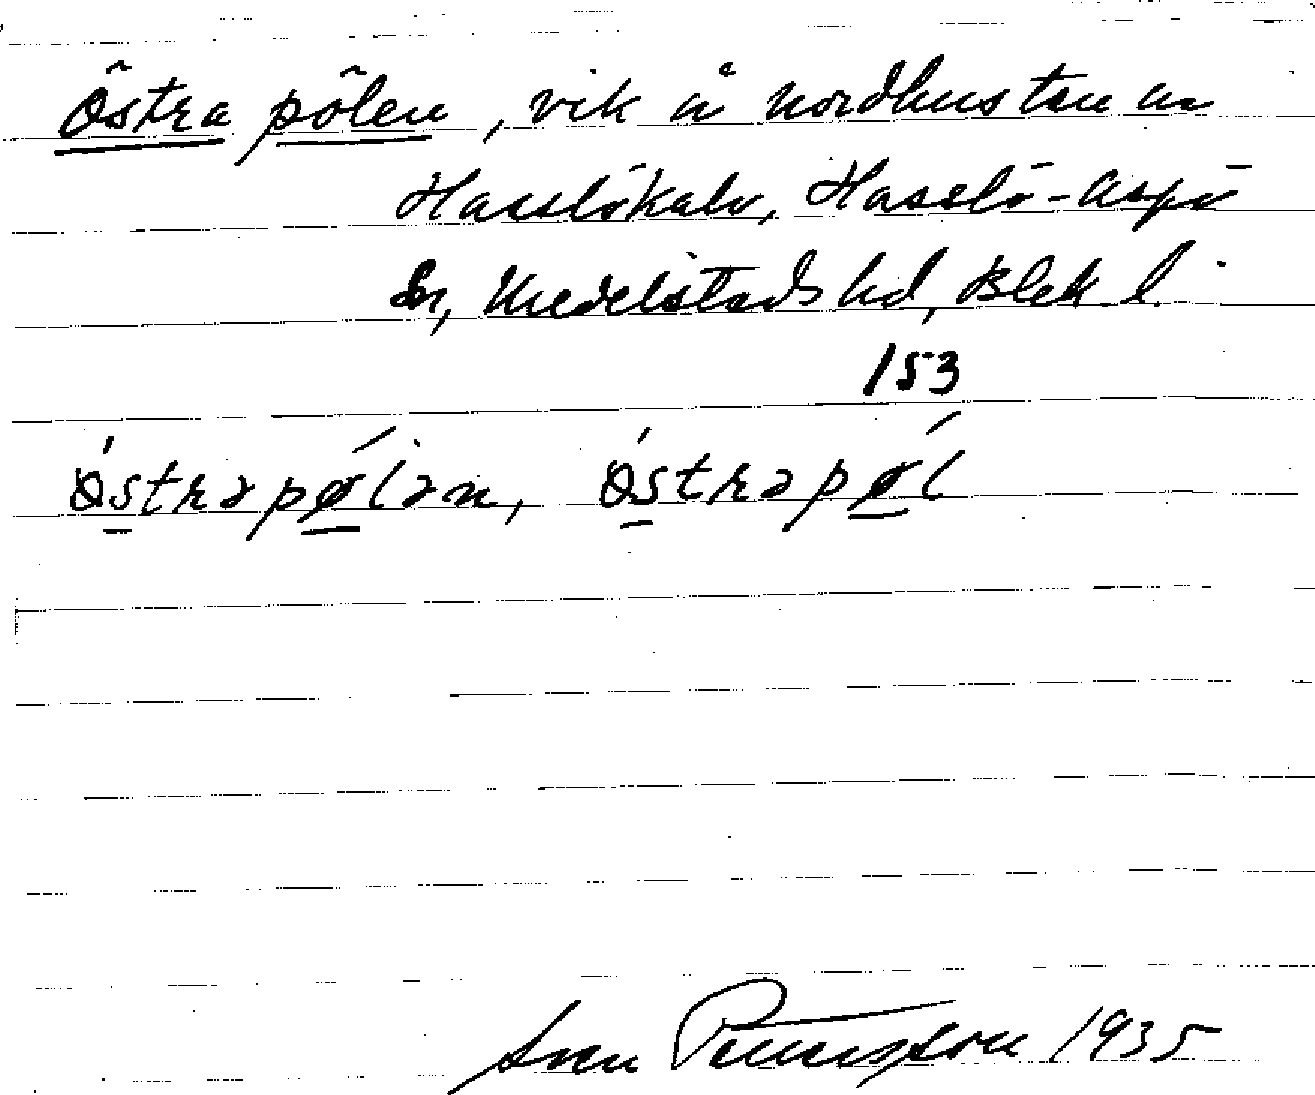 Östra pölen, vik å nordkusten av
Hasslökalv, Hasslö-Aspö
sn, Medelstads hd, Blek. l.
153
östrəpøĺən, östrəpøĺ
Sven Pettersson 1935